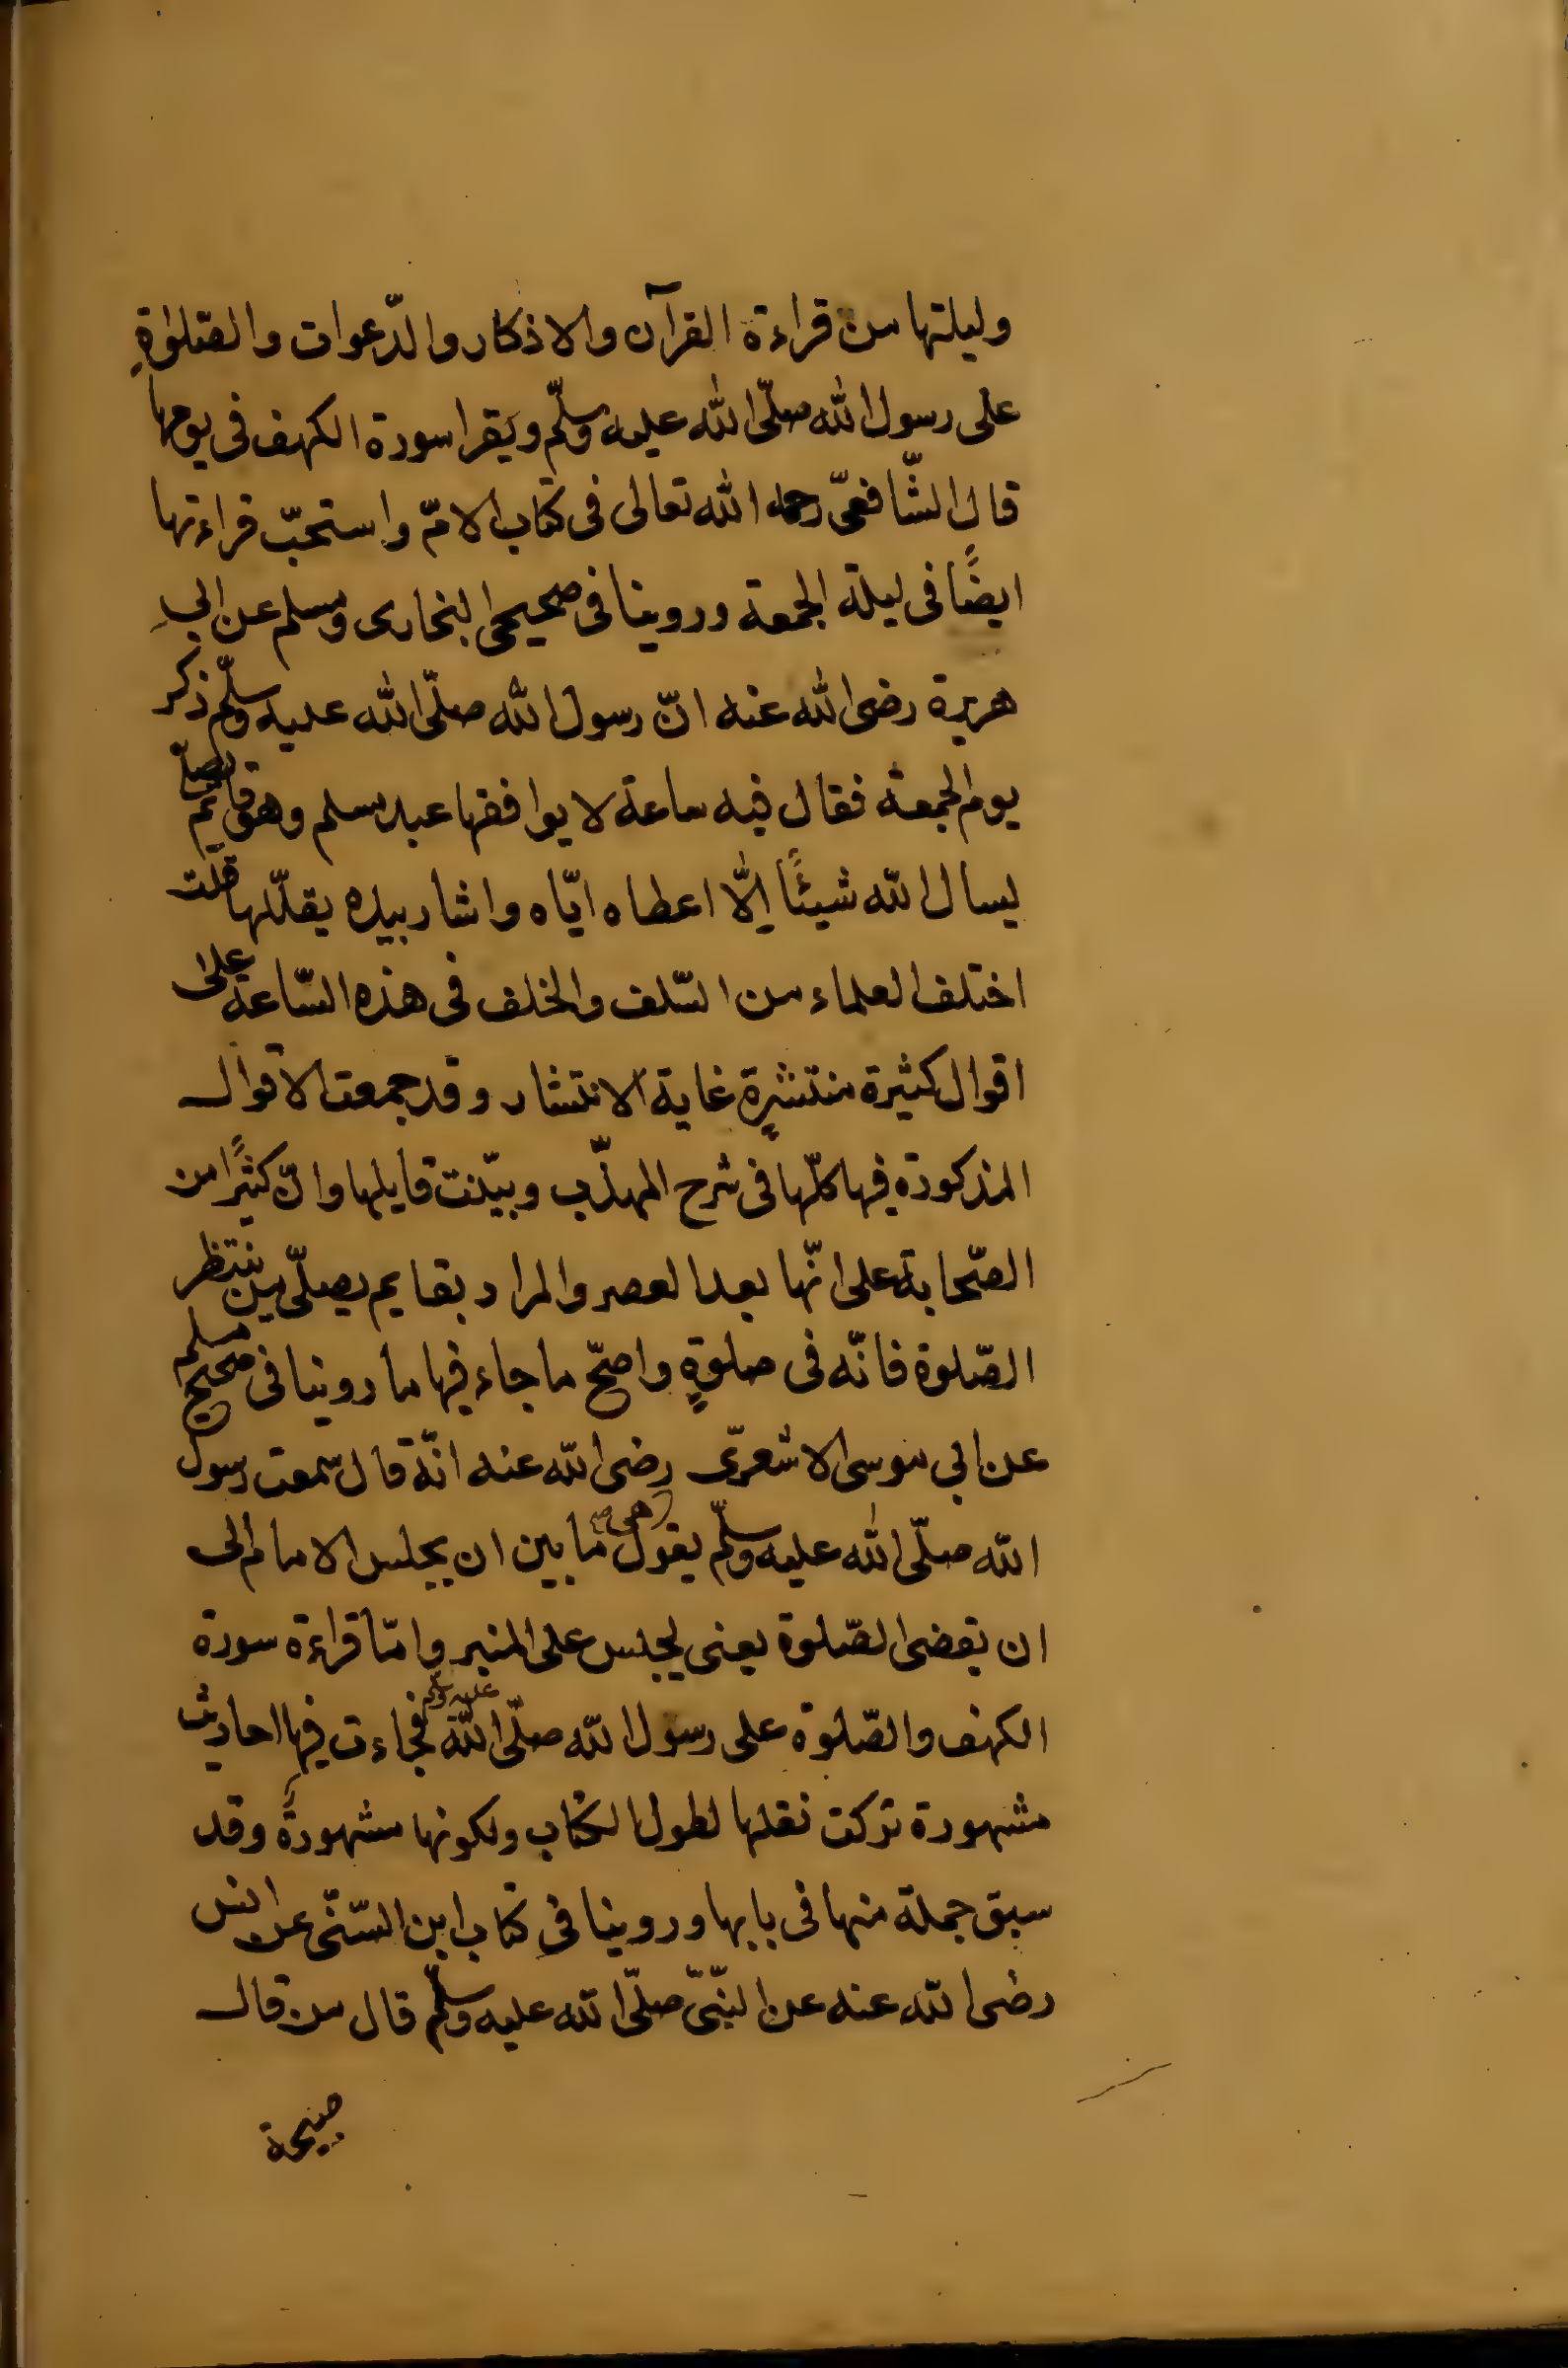 وليلتها من قراءة القرآن والاذكار والدّعوات والصّلوٰةِ
على رسول الله صلّى الله عليه وسلّم ويَقرا سورة الكهف فى يومها
قال الشّافعىّ رحمه الله تعالى فى كتاب الامّ واستحبّ قراءتها
ايضًا فى ليلة الجمعة وروينا فى صحيحى البخارى ومسلم عن ابى
هريرة رضى الله عنه انّ رسول الله صلّى الله عليه وسلّم ذكر
يوم الجمعة فقال فيه ساعة لا يوافقها عبد مسلم وهو قايم يصلّى
يسال الله شيئًا إلّا اعطاه ايّاه واشار بيده يقلّلها قلت
اختلف العلماء من السّلف والخلف فى هذه السّاعة على
اقوال كثيرة منتشرةٍ غاية الانتشار وقد جمعت الاقوال
المذكورة فيها كلّها فى شرح المهذّب وبيّنت قايلها وانّ كثيرًا من
الصّحابة على انّها بعد العصر والمراد بقايم يصلّى من ينتظر
الصّلوة فانّه فى صلوةٍ واصحّ ما جاء فيها ما روينا فى صحيح مسلم
عن ابى موسى الاشعرّى رضى الله عنه انّه قال سمعت رسول
الله صلّى الله عليه وسلّم يقول هى ما بين ان يجلس الامام الى
ان يقضى الصّلوة يعنى يجلس على المنبر وامّا قراءة سورة
الكهف والصّلوة على رسول الله صلّى الله عليه وسلم فجاءت فيها احاديث
مشهورة تركت نقلها لطول الكتاب ولكونها مشهورةً وقد
سبق جملة منها فى بابها وروينا فى كتاب ابن السّنّى عن انس
رضى الله عنه عن النّبىّ صلّى الله عليه وسلّم قال من قال
صبيحة